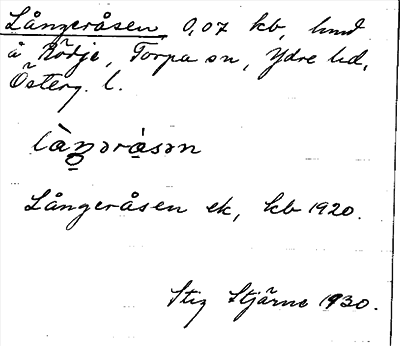 Långeråsen 0,07 kb, hmd
å Rödje, Torpa sn, Ydre hd,
Österg. l.
Långeråsen ek, kb 1920.
Stig Stjärne 1930.